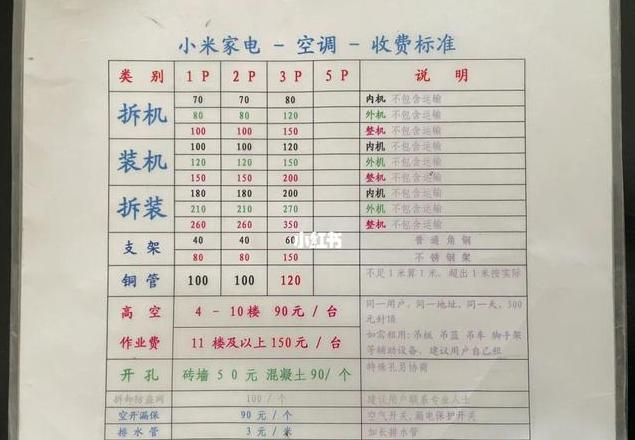 小米家电 - 空调 - 收费标准
类 别 1 P 2 P 3 P 5 P 说 明
拆机
70 70 80 内机 不包含运输
80 80 120 外机 不包含运输
100 100 150 整机 不包含运输
装机
100 100 120 内机 不包含运输
120 120 150 外机 不包含运输
150 150 200 整机 不包含运输
拆装
180 180 200 内机 不包含运输
210 210 270 外机 不包含运输
260 260 350 整机 不包含运输
支架
40 40 60 普通角钢
80 80 150 不锈钢架
小红书
铜管 100 100 120 不足1米算1米，超出1米按实际
高空
作业费
4 - 10楼 90元 / 台
同一用户，同一地址，同一天，500
元封顶
11 楼及以上150元 / 台
如需租用：吊板 吊蓝 吊车 脚手架
等辅助设备，建议用户自己租
开孔 砖墙 50元 混凝土90/个 特殊孔另协商
拆卸防盗网 100 / 个 建议用户联系专业人士
空开漏保 90元 / 个 空气开关，漏电保护开关
排水管 3元 / 米 加长排水管